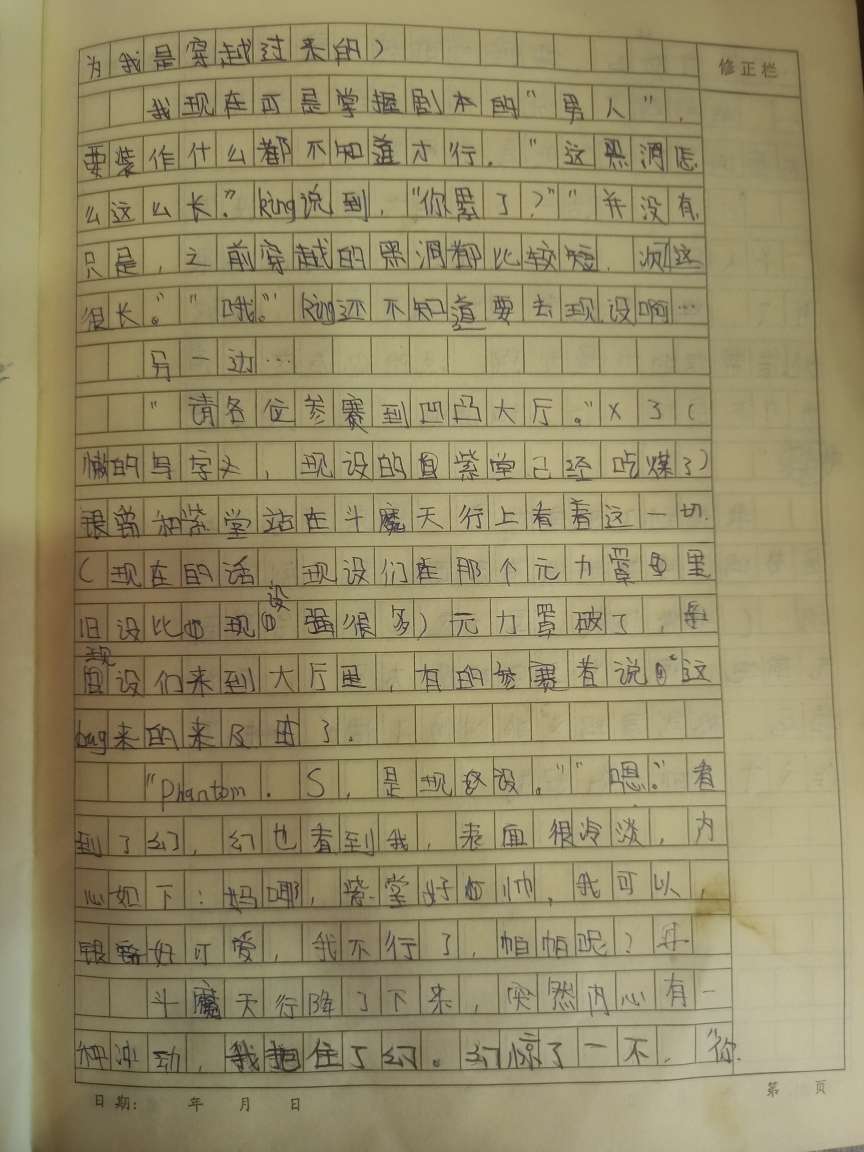 为我是穿越过来的）
修正栏
我现在可是掌握剧本的“男人”，
要装作什么都不知道才行。“这黑洞怎
么这么长？”king说到，“你累了？”“并没有，
只是，之前穿越的黑洞都比较短，次这
很长。”“哦。”king还不知道要去现设啊…
另一边…
“请各位参赛到凹凸大厅。”X了（
懒的写字义，现设的紫堂已经吃煤了）
银爵和紫堂站在斗魔天行上看着这一切.
（现在的话，现设们在那个元力罩里
旧设比现设强很多）元力罩破了，
现设们来到大厅里，有的参赛者说“这
bug来的来及时了。
“Phantom．S，是现设。”“嗯。”看
到了幻，幻也看到我，表面很冷淡，内
心如下：妈哪，紫堂好帅，我可以，
银爵好可爱，我不行了，帕帕呢？
斗魔天行降了下来，突然内心有一
种冲动，我抱住了幻。幻惊了一不，“你.
日期： 年 月 日
第 页